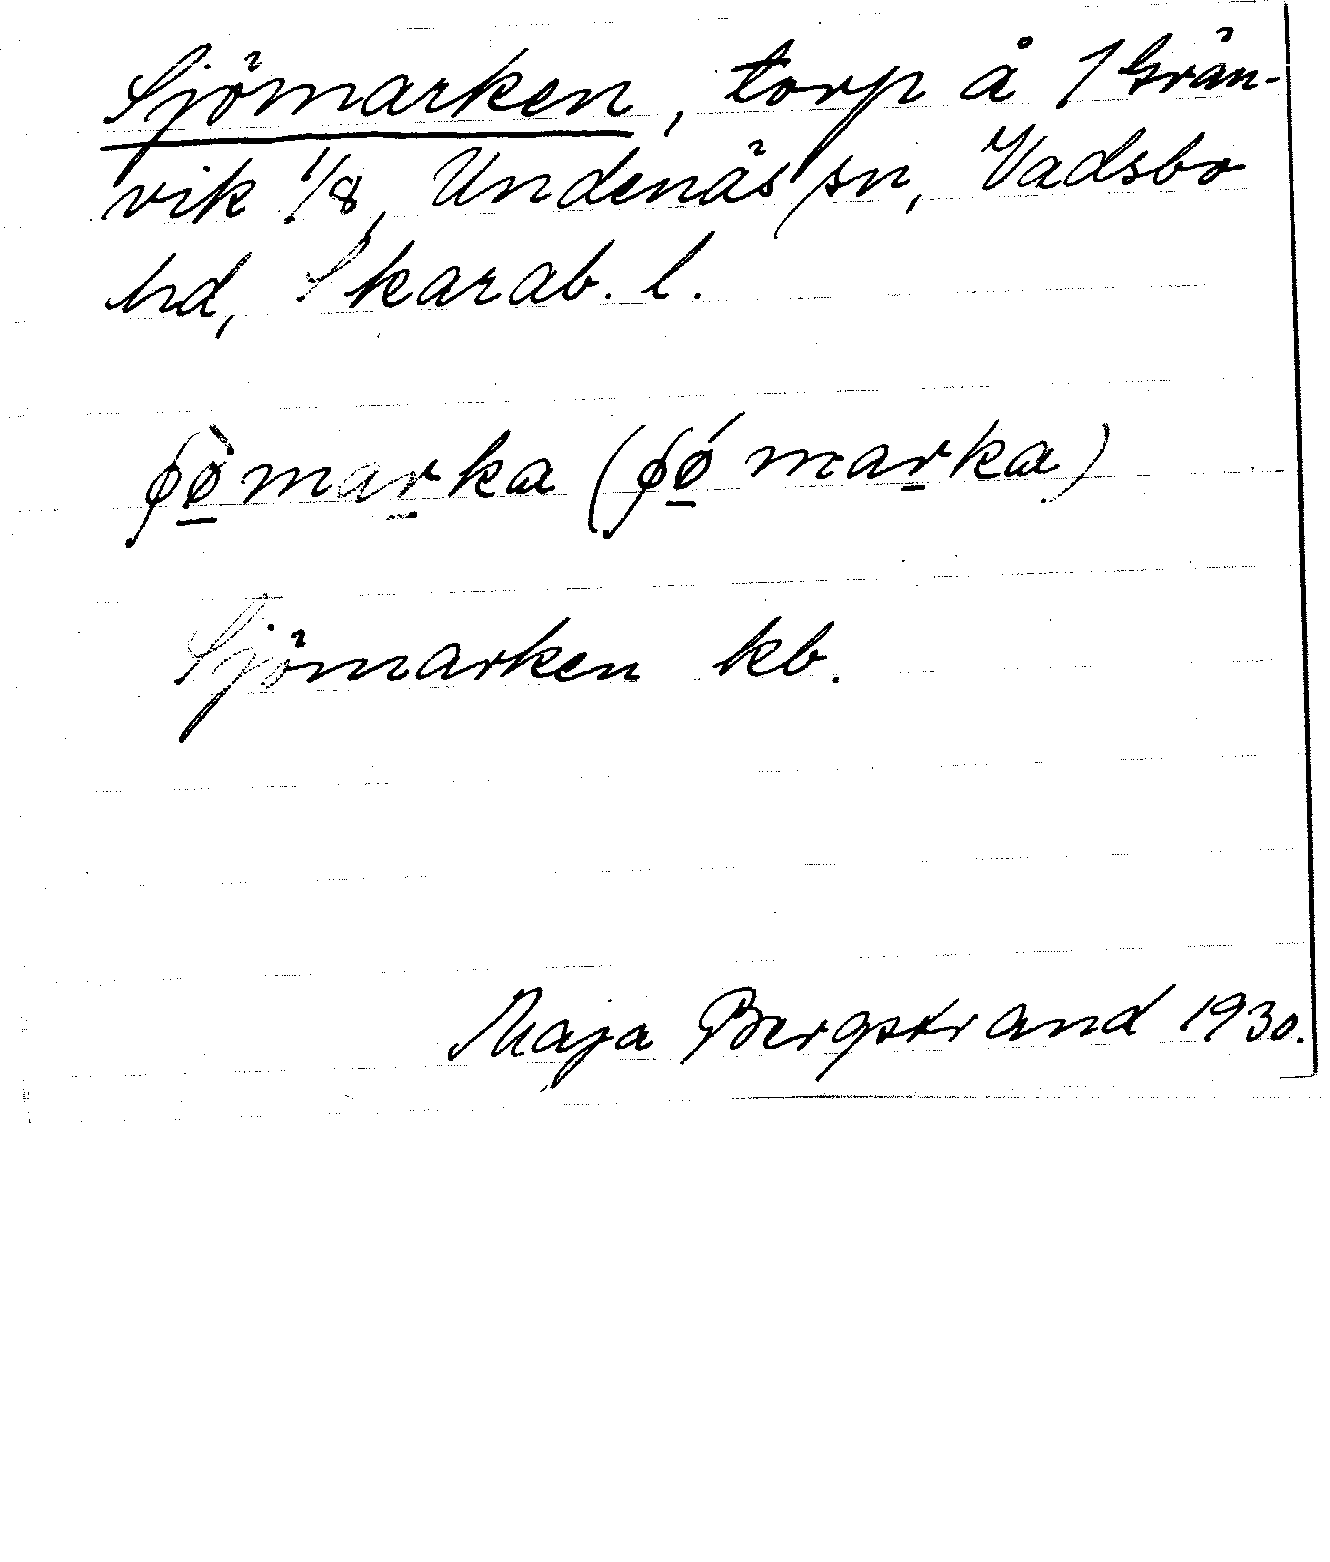 Sjömarken, torp å 1 Grän-
vik 1/8, Undenäs sn, Vadsbo
hd, Skarab. l.
ʃø̠̀mar̠ka (ʃǿ̠mar̠ka)
Sjömarken kb.
Maja Bergstrand 1930.